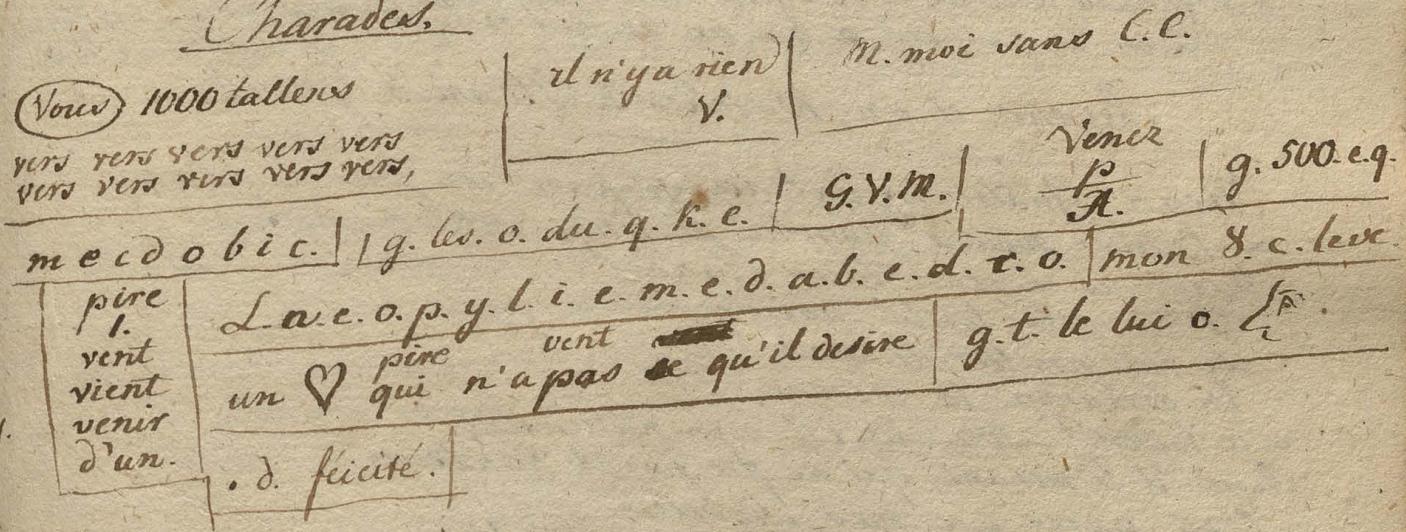 Charades.
Vous 1000 tallens
vers vers vers vers vers
vers vers vers vers vers,
il n'y a rien
V.
M. moi sans C.C.
m e c d o b i c.
g. les. o. du. q. k. e.
G. V. M.
Venez
p
A.
g. 500. e. q.
pire
1.
vent
vient
venir
d'un.
L. a. e. o. p. y. l. i. e. m. e. d. a. b. e. d. r. o.
mon 8. c. leve.
pire vent
un ♡ qui n'a pas ce qu'il desire
g. t. le lui o.
. d. féicité.